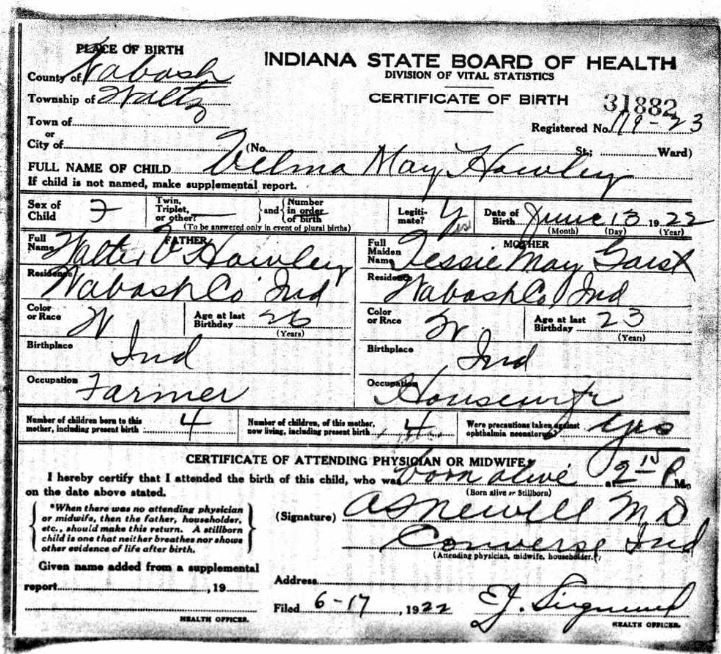 PLACE OF BIRTH
INDIANA STATE BOARD OF HEALTH
DIVISION OF VITAL STATISTICS
County of Wabash
Township of Waltz
CERTIFICATE OF BIRTH 31882
Town of
or
Registered No. 119-23
City of (No. St.; Ward)
FULL NAME OF CHILD Velma May Hawley
If child is not named, make supplemental report.
Sex of Child F Twin, Triplet, or other? and Number in order of birth Legitimate? Yes Date of Birth June 13 1922
(To be answered only in event of plural births) (Month) (Day) (Year)
FATHER MOTHER
Full Name Walter V Hawley Full Maiden Name Tessie May Garst
Residence Wabash Co Ind Residence Wabash Co Ind
Color or Race W Age at last Birthday 26 (Years) Color or Race W Age at last Birthday 23 (Years)
Birthplace Ind Birthplace Ind
Occupation Farmer Occupation Housewife
Number of children born to this mother, including present birth 4 Number of children, of this mother, now living, including present birth 4 Were precautions taken against ophthalmia neonatorum? Yes
CERTIFICATE OF ATTENDING PHYSICIAN OR MIDWIFE
I hereby certify that I attended the birth of this child, who was born alive at 2 P M.
on the date above stated. (Born alive or Stillborn)
*When there was no attending physician
or midwife, then the father, householder,
etc., should make this return. A stillborn
child is one that neither breathes nor shows
other evidence of life after birth.
(Signature) Newell M D
Converse Ind
(Attending physician, midwife, householder.)
Given name added from a supplemental
report , 19
Address
Filed 6-17, 1922 E.J.
HEALTH OFFICER. HEALTH OFFICER.